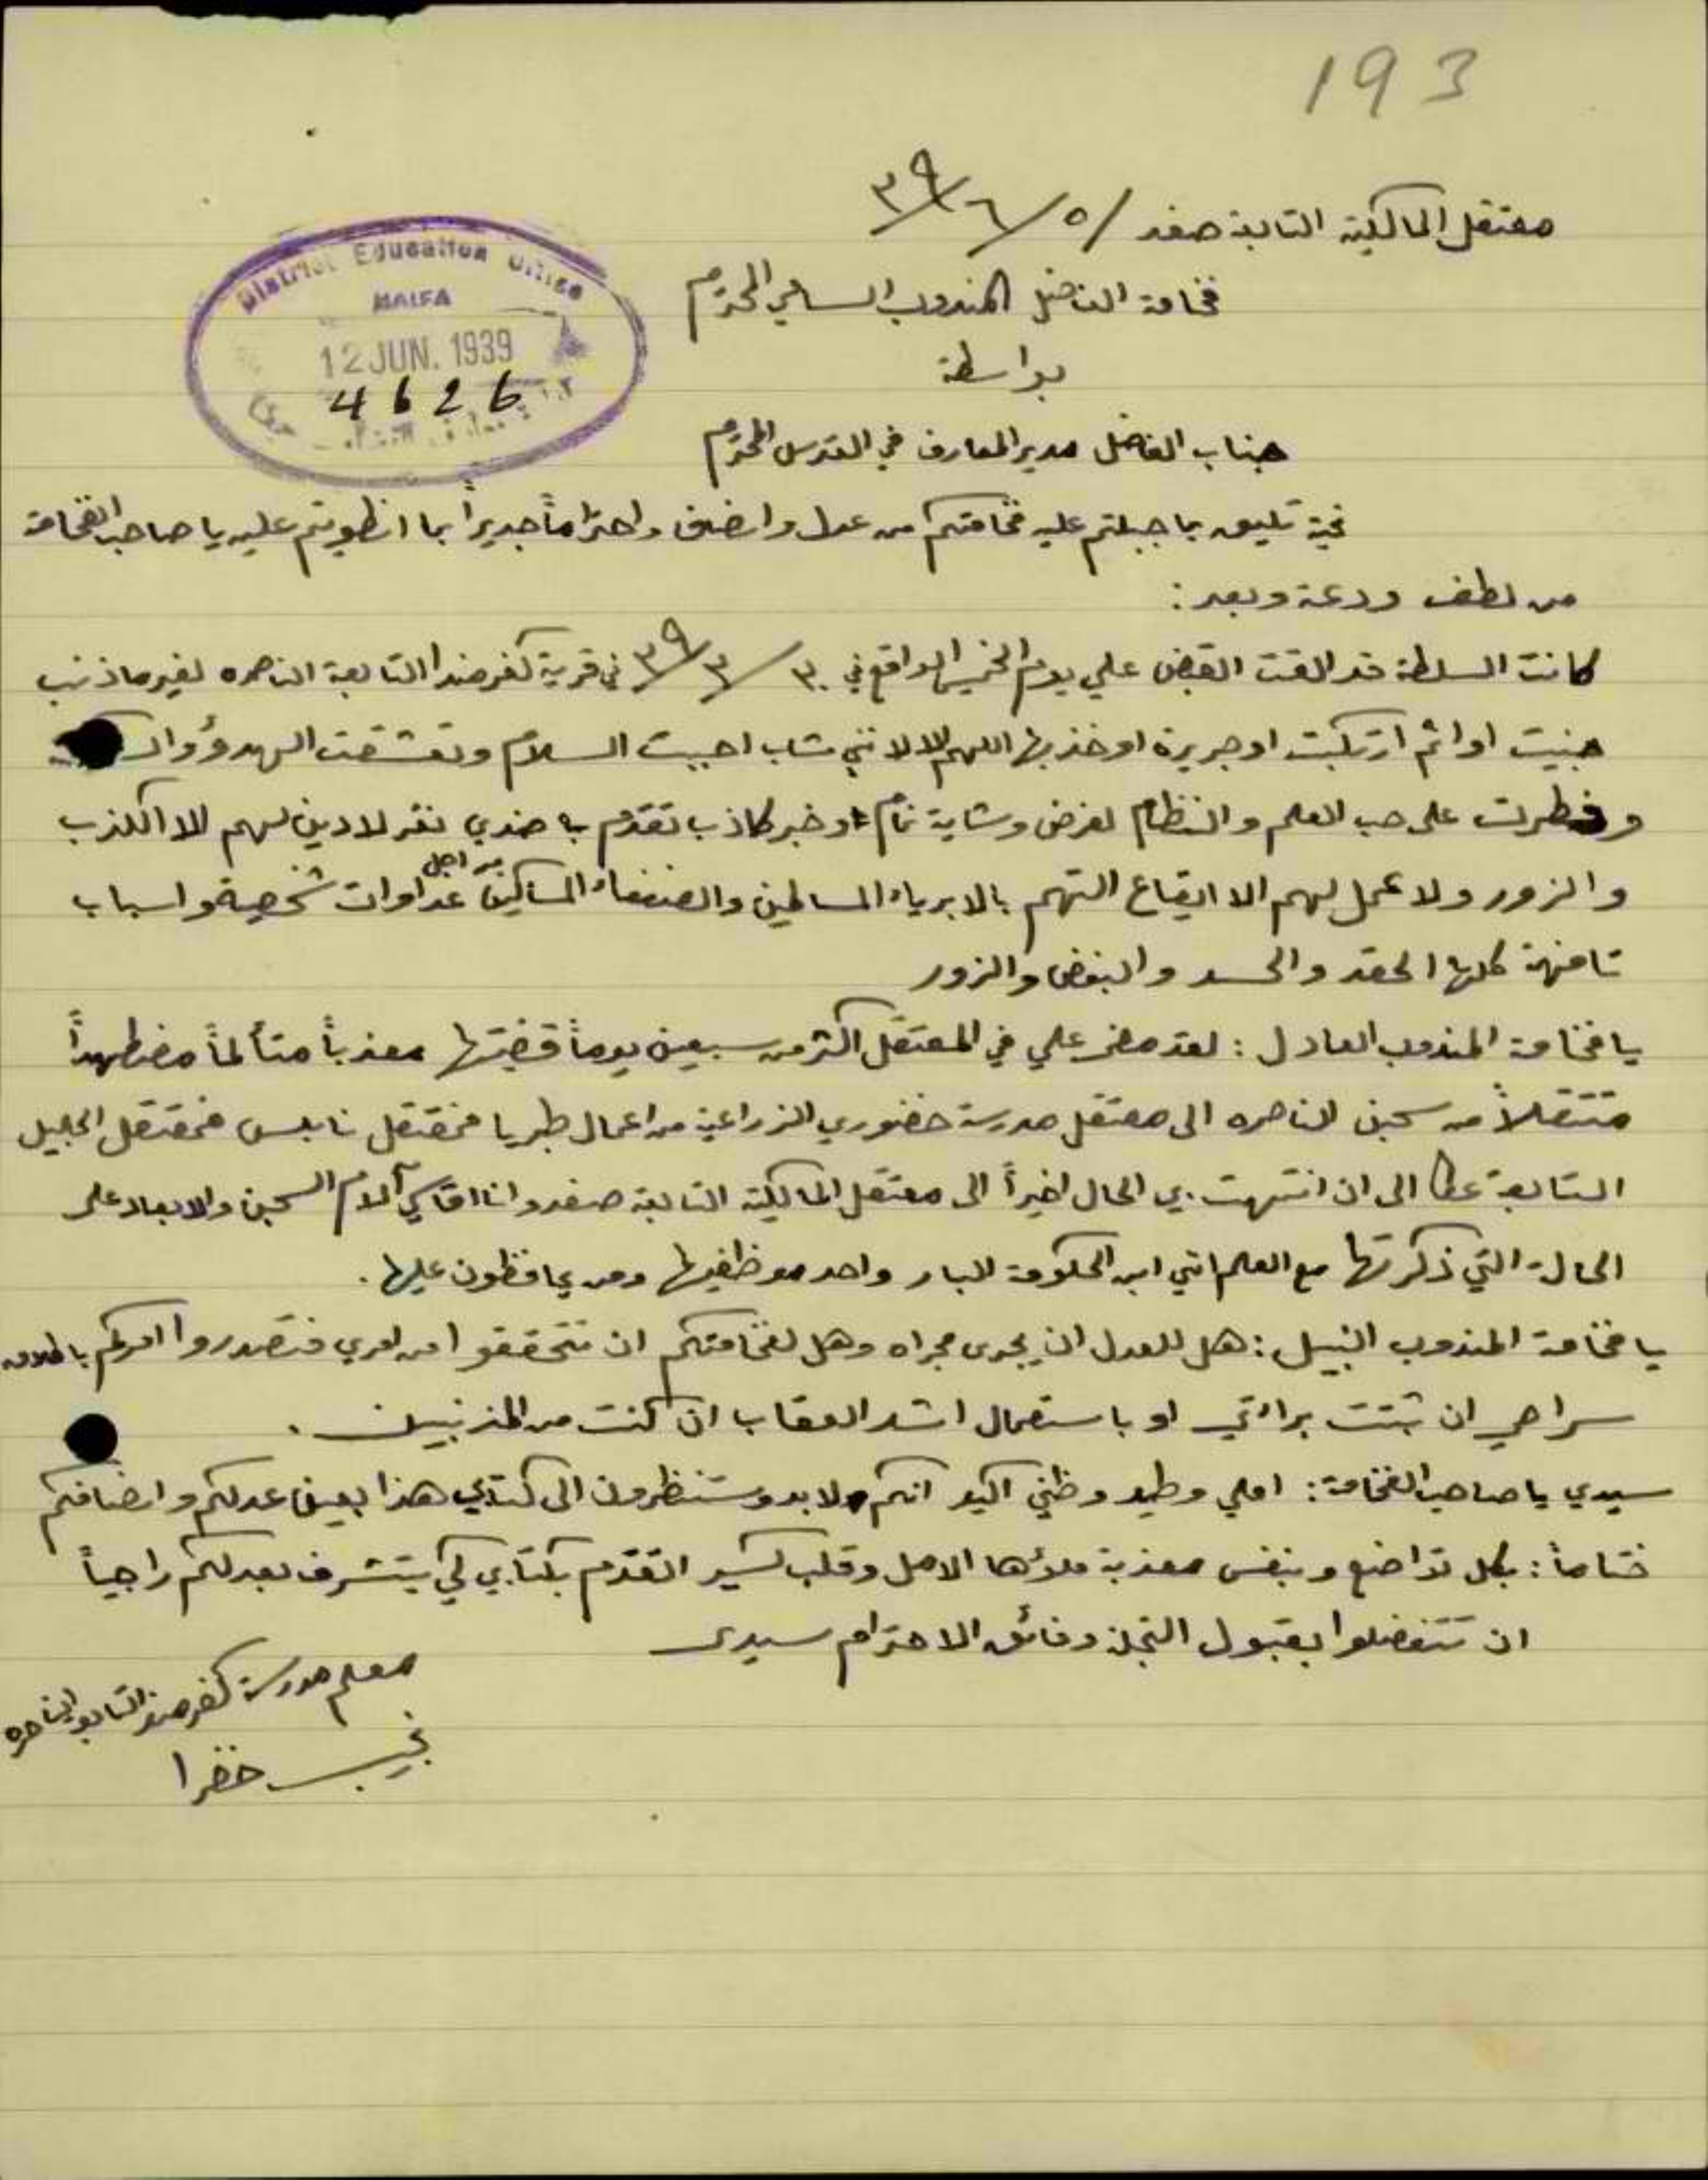 193
معتقل المالكية التابعة صفد / ٥/٦/٣٩
فخامة الفاضل المندوب السامي المحترم
بواسطة
جناب الفاضل مدير المعارف في القدس المحترم
District Education Office
HAIFA
12 JUN. 1939
4626
تحية تليق بما جبلتم عليه فخامتكم من عدل وانصاف واحتراماً جديراً بما انطويتم عليه يا صاحب الفخامة
من لطف ودعة وبعد:
كانت السلطة قد القت القبض علي يوم الخميس الواقع في ٣٠/٣/٣٩ في قرية كفرمندا التابعة الناصره لغير ما ذنب
جنيت او اثم ارتكبت او جريرة اوخذ بها اللهم الا لانني شاب احببت السلام وتعشقت الهدوؤ
وفطرت على حب العلم والنظام لغرض وشاية نمام او خبر كاذب تقدم با ضدي نفر لا دين لهم الا الكذب
والزور ولا عمل لهم الا ايقاع التهم بالابرياء المسالمين والضعفاء المساكين من اجل عداوات شخصية واسباب
تافهة كلها الحقد والحسد والبغض والزور
يا فخامة المندوب العادل: لقد مضى علي في المعتقل اكثر من سبعين يوماً قضيتها معذباً متألماً مضطهداً
متنقلاً من سجن الناصره الى معتقل مدرسة خضوري الزراعية من اعمال طبريا فمعتقل نابلس فمعتقل الجليل
التابعة عكا الى ان انتهت بي الحال اخيراً الى معتقل المالكية التابعة صفد وانا اقاسي آلام السجن والابعاد على
الحالة التي ذكرتها مع العلم انني ابن الحكومة البار واحد موظفيها ومن يحافظون عليها.
يا فخامة المندوب النبيل: هل للعدل ان يجرى مجراه وهل لفخامتكم ان تتحققوا من امري فتصدروا امركم باطلاق
سراحي ان ثبتت براءتي او باستعمال اشد العقاب ان كنت من المذنبين.
سيدي يا صاحب الفخامة: املي وطيد وظني اكيد انكم ولابد وستنظرون الى كتابي هذا بعين عدلكم وانصافكم
ختاماً: بكل تواضع وبنفس معذبة ملاؤها الامل وقلب كسير اتقدم بكتابي كي يتشرف بعدلكم راجياً
ان تتفضلوا بقبول التجلة وفائق الاحترام سيدي
معلم مدرسة كفرمندا التابعة الناصره
نجيب خضرا